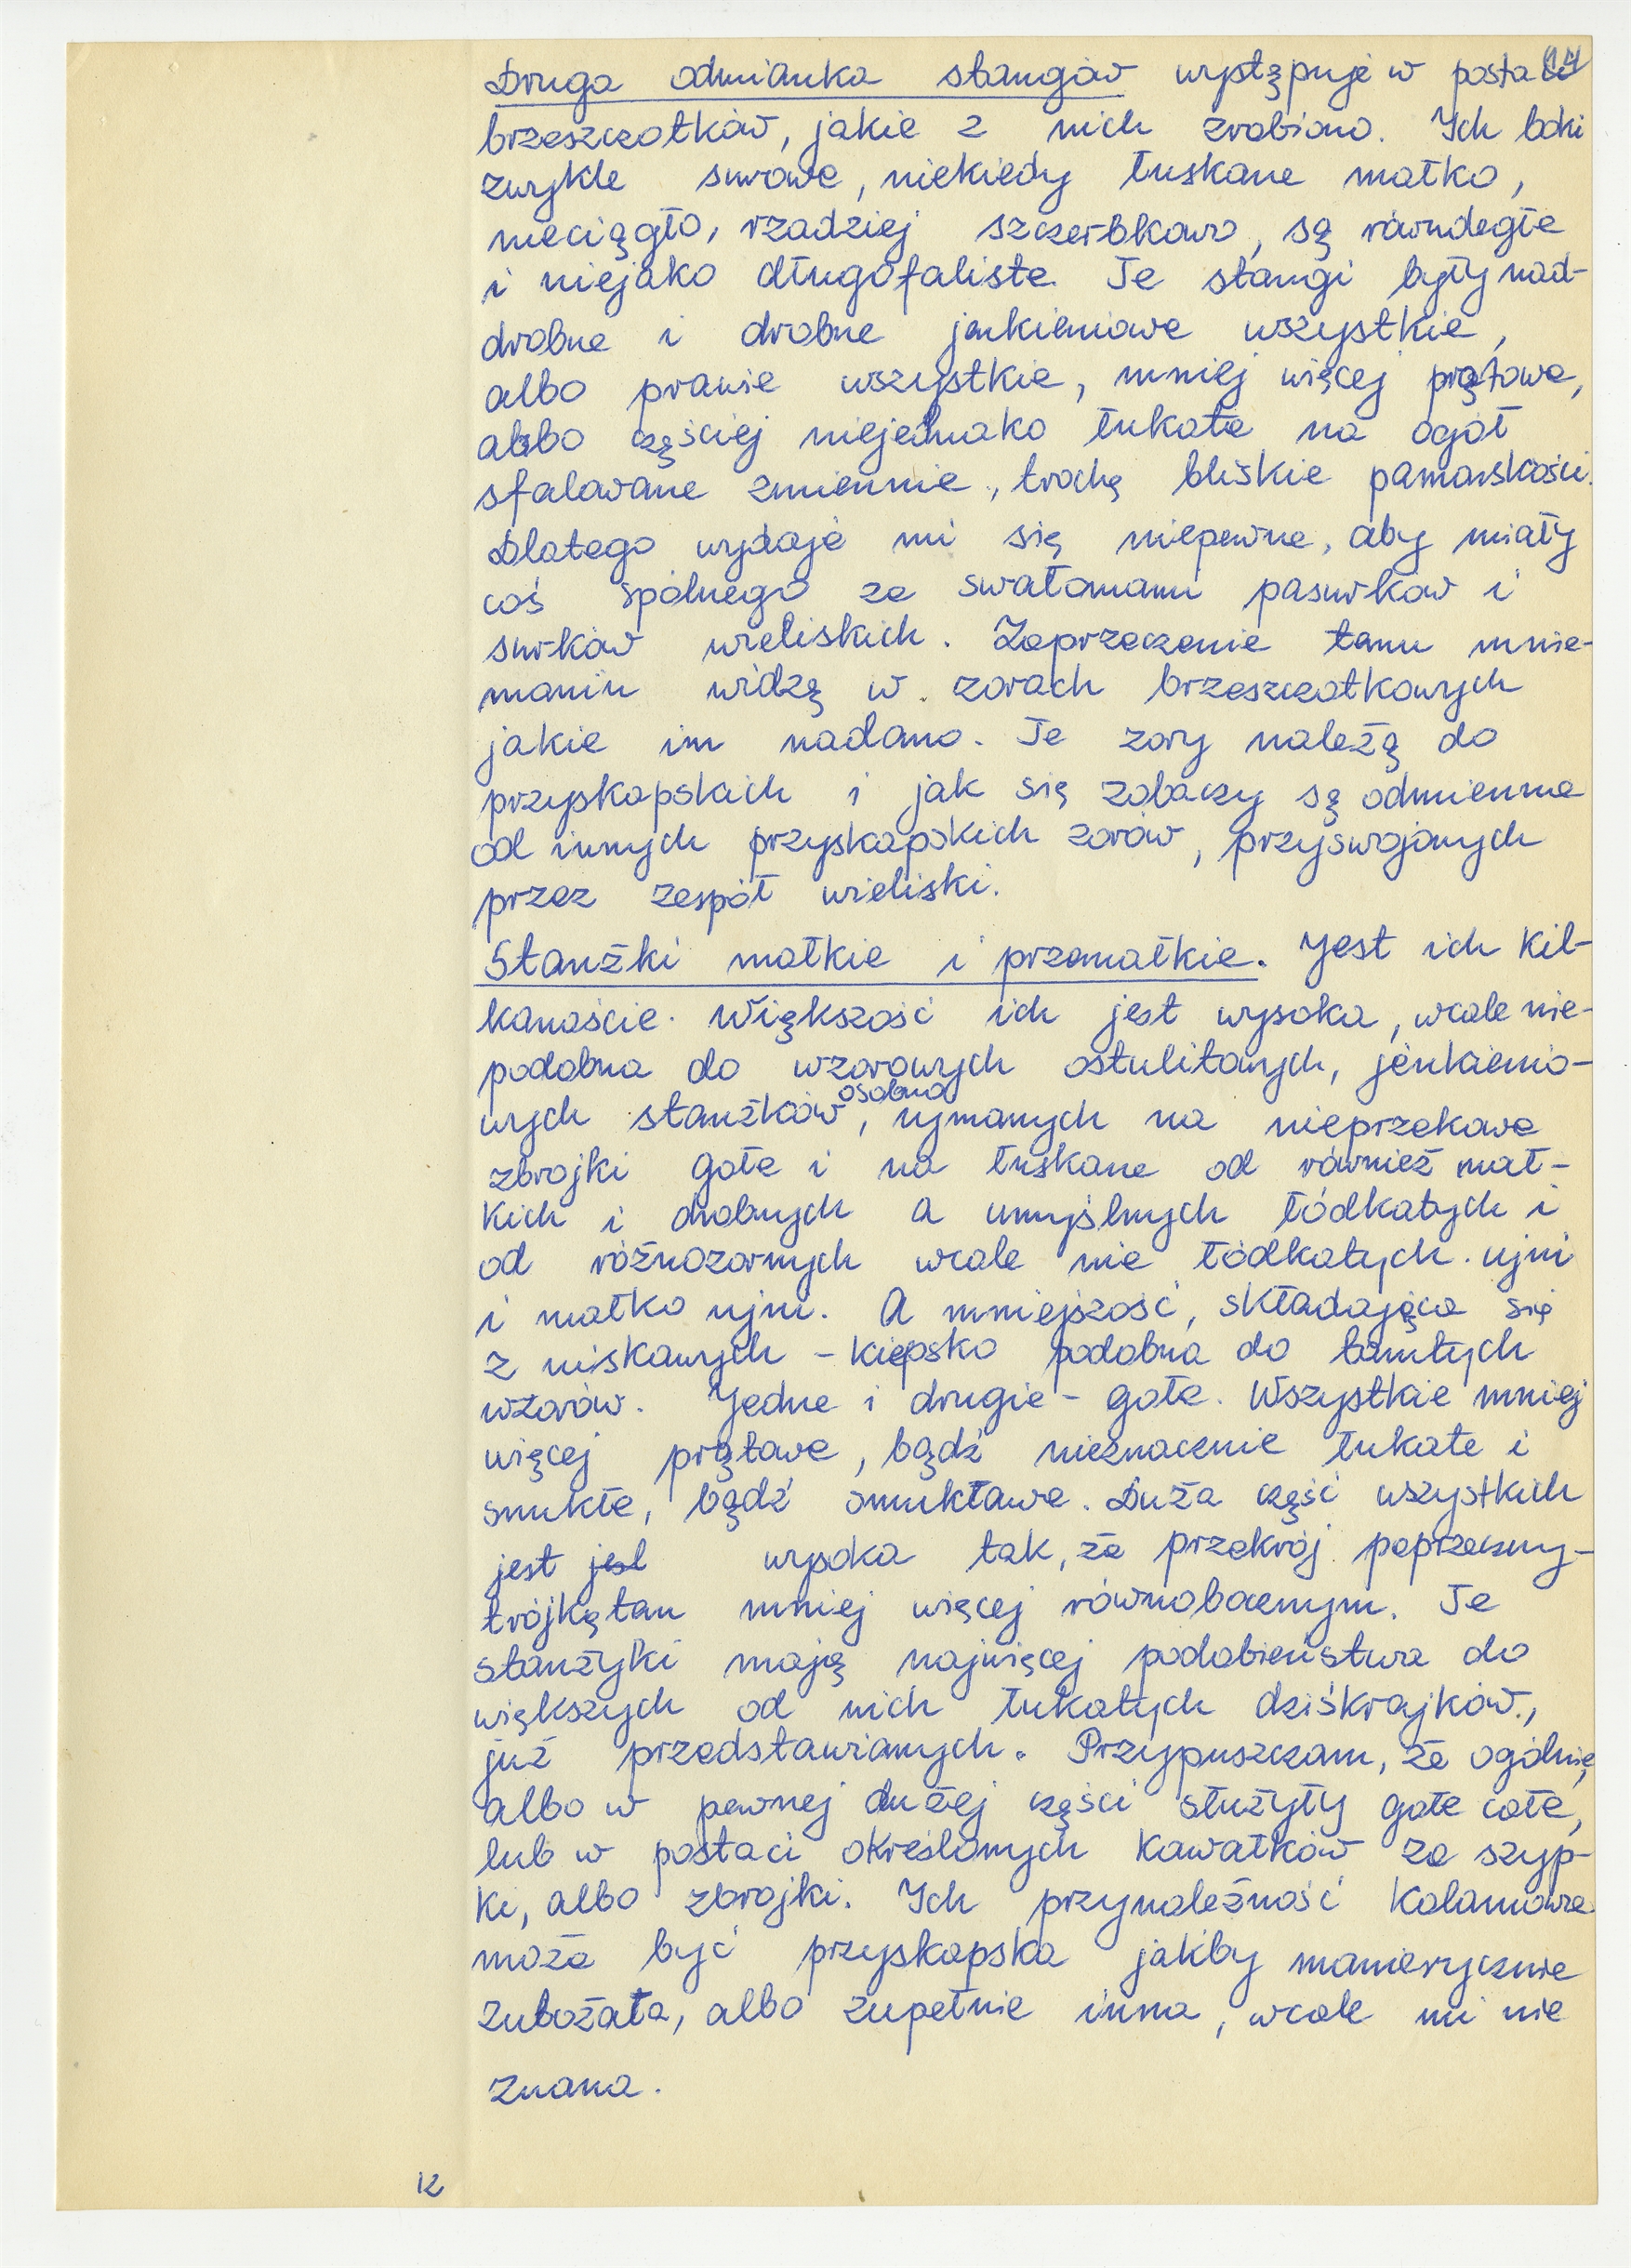 14
Druga odmianka stangów występuje w postaci
brzeszczotków, jakie z nich zrobiono. Ich boki
zwykle surowe, niekiedy łuskane małko,
nieciągło, rzadziej szczerbkowo, są równoległe
i niejako długofaliste. Te stangi były nad-
drobne i drobne jenkieniowe wszystkie,
albo prawie wszystkie, mniej więcej prętowe,
albo częściej niejednako łukate na ogół
sfalowane zmiennie, trochę bliskie pamorskości.
Dlatego wydaje mi się niepewne, aby miały
coś spólnego ze swałomami pasurkow i
surków wieliskich. Zaprzeczenie temu mnie-
maniu widzę w zorach brzeszczotkowych
jakie im nadano. Te zory należą do
przyskopskich i jak się zobaczy są odmienne
od innych przyskopskich zorów, przyswojonych
przez zespół wieliski.
Stanżki małkie i przemałkie. Jest ich kil-
kanaście. Większość ich jest wysoka, wcale nie-
podobna do wzorowych ostulitowych, jenkienio-
wych stanżków, osobno ujmanych na nieprzekawe
zbrojki gołe i na łuskane od również mał-
kich i drobnych a umyślnych łódkatych i
od różnozornych wcale nie łódkatych ujni
i małko ujni. A mniejszość, składająca się
z niskawych - kiepsko podobna do tamtych
wzorów. Jedne i drugie - gołe. Wszystkie mniej
więcej prętowe, bądź nieznacznie łukate i
smukłe, bądź smukławe. Duża część wszystkich
jest jest wysoka tak, że przekrój poprzeczny -
trójkątem mniej więcej równobocznym. Te
stanżyki mają najwięcej podobieństwa do
większych od nich łukatych dziśkrajków,
już przedstawianych. Przypuszczam, że ogólnie,
albo w pewnej dużej części służyły gołe całe,
lub w postaci określonych kawałków za szyp-
ki, albo zbrojki. Ich przynależność kolanowza
może być przyskopska jakby manierycznie
zubożała, albo zupełnie inna, wcale mi nie
znana.
12